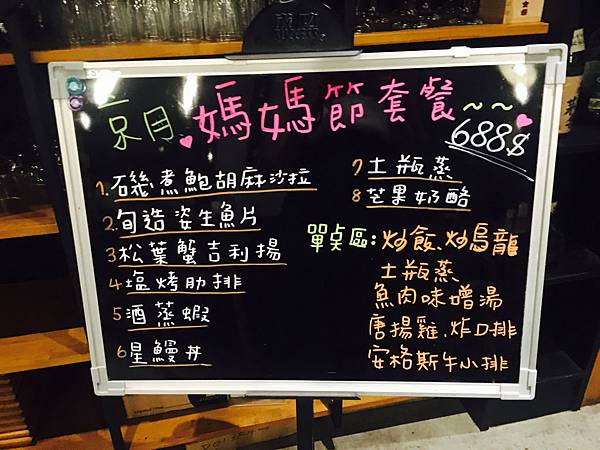 京月 媽媽節套餐~~
688$
1.磯煮鮑胡麻沙拉
2.旬造姿生魚片
3松葉蟹吉利揚
4塩烤肋排
5酒蒸蝦
6星鰻丼
7土瓶蒸
8芒果奶酪
單桌區:炒飯、炒烏龍
土瓶蒸
魚肉味增湯
唐揚雞、炸口排
安格斯牛小排